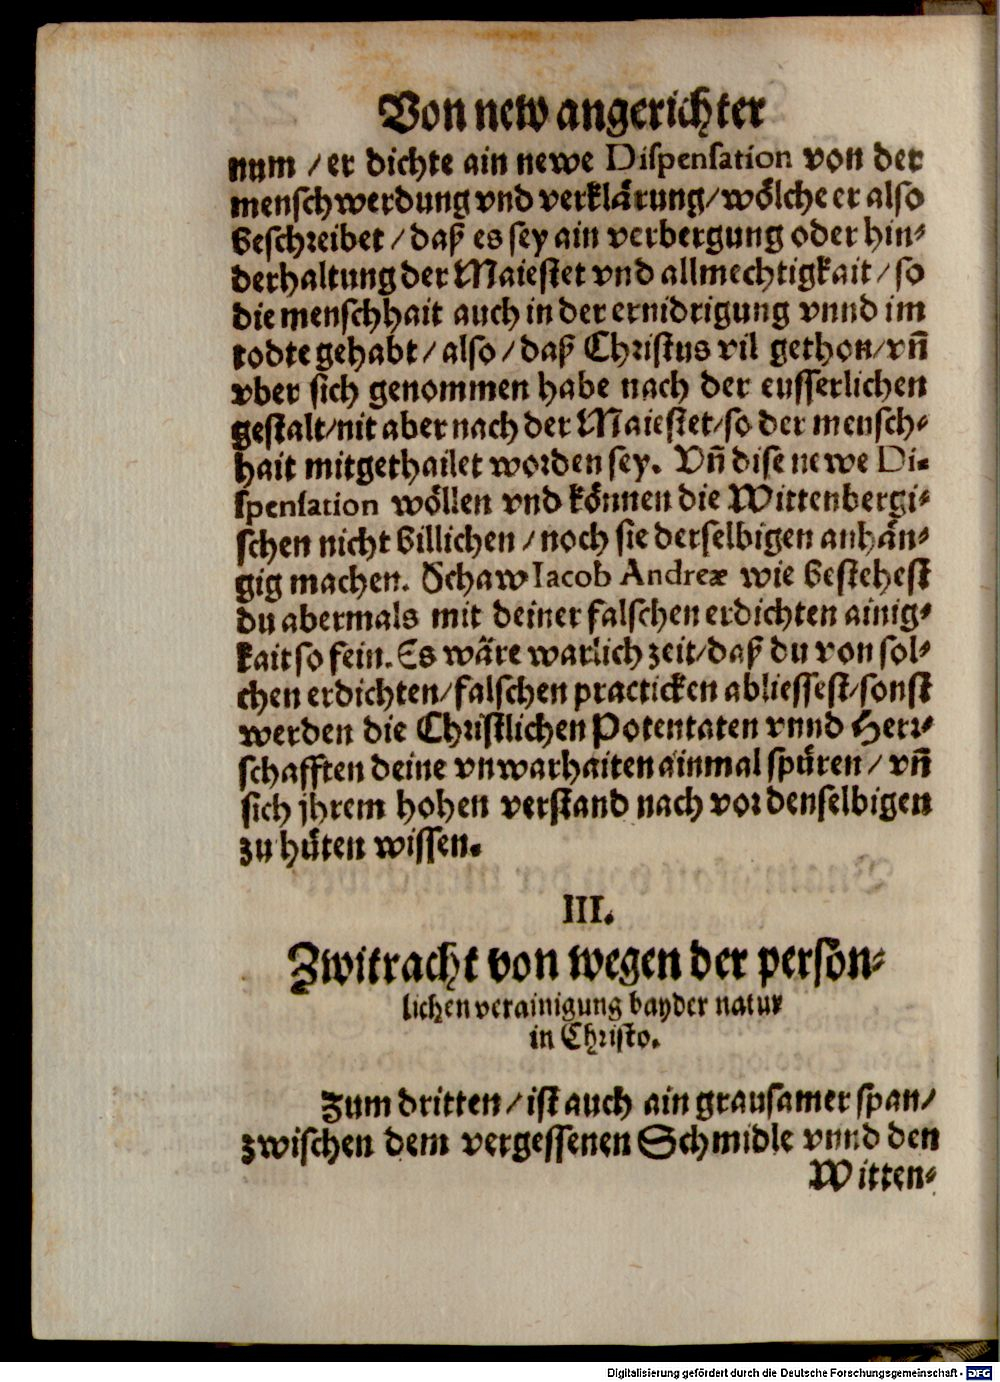 Von new angerichter
num / er dichte ain newe Dispensation von der
menschwerdung vnd verklärung / wölche er also
beschreibet / daß es sey ain verbergung oder hin-
derhaltung der Maiestet vnd allmechtigkait / so
die menschhait auch in der ernidrigung vnnd im
todte gehabt / also / daß Christus vil gethon / vñ
vber sich genommen habe nach der eusserlichen
gestalt / nit aber nach der Maiestet / so der mensch-
hait mitgethailet worden sey. Vñ dise newe Di-
spensation wöllen vnd können die Wittenbergi-
schen nicht billichen / noch sie derselbigen anhän-
gig machen. Schaw Iacob Andreæ wie bestehest
du abermals mit deiner falschen erdichten ainig-
kait so fein. Es wäre warlich zeit / daß du von sol-
chen erdichten / falschen practicken abliessest / sonst
werden die Christlichen Potentaten vnnd Herr-
schafften deine vnwarhaiten ainmal spüren / vñ
sich jhrem hohen verstand nach vor denselbigen
zu hüten wissen.
III.
Zwitracht von wegen der person-
lichen verainigung bayder natur
in Christo.
Zum dritten / ist auch ain grausamer span /
zwischen dem vergessenen Schmidle vnnd den
Witten-
Digitalisierung gefördert durch die Deutsche Forschungsgemeinschaft - DFG